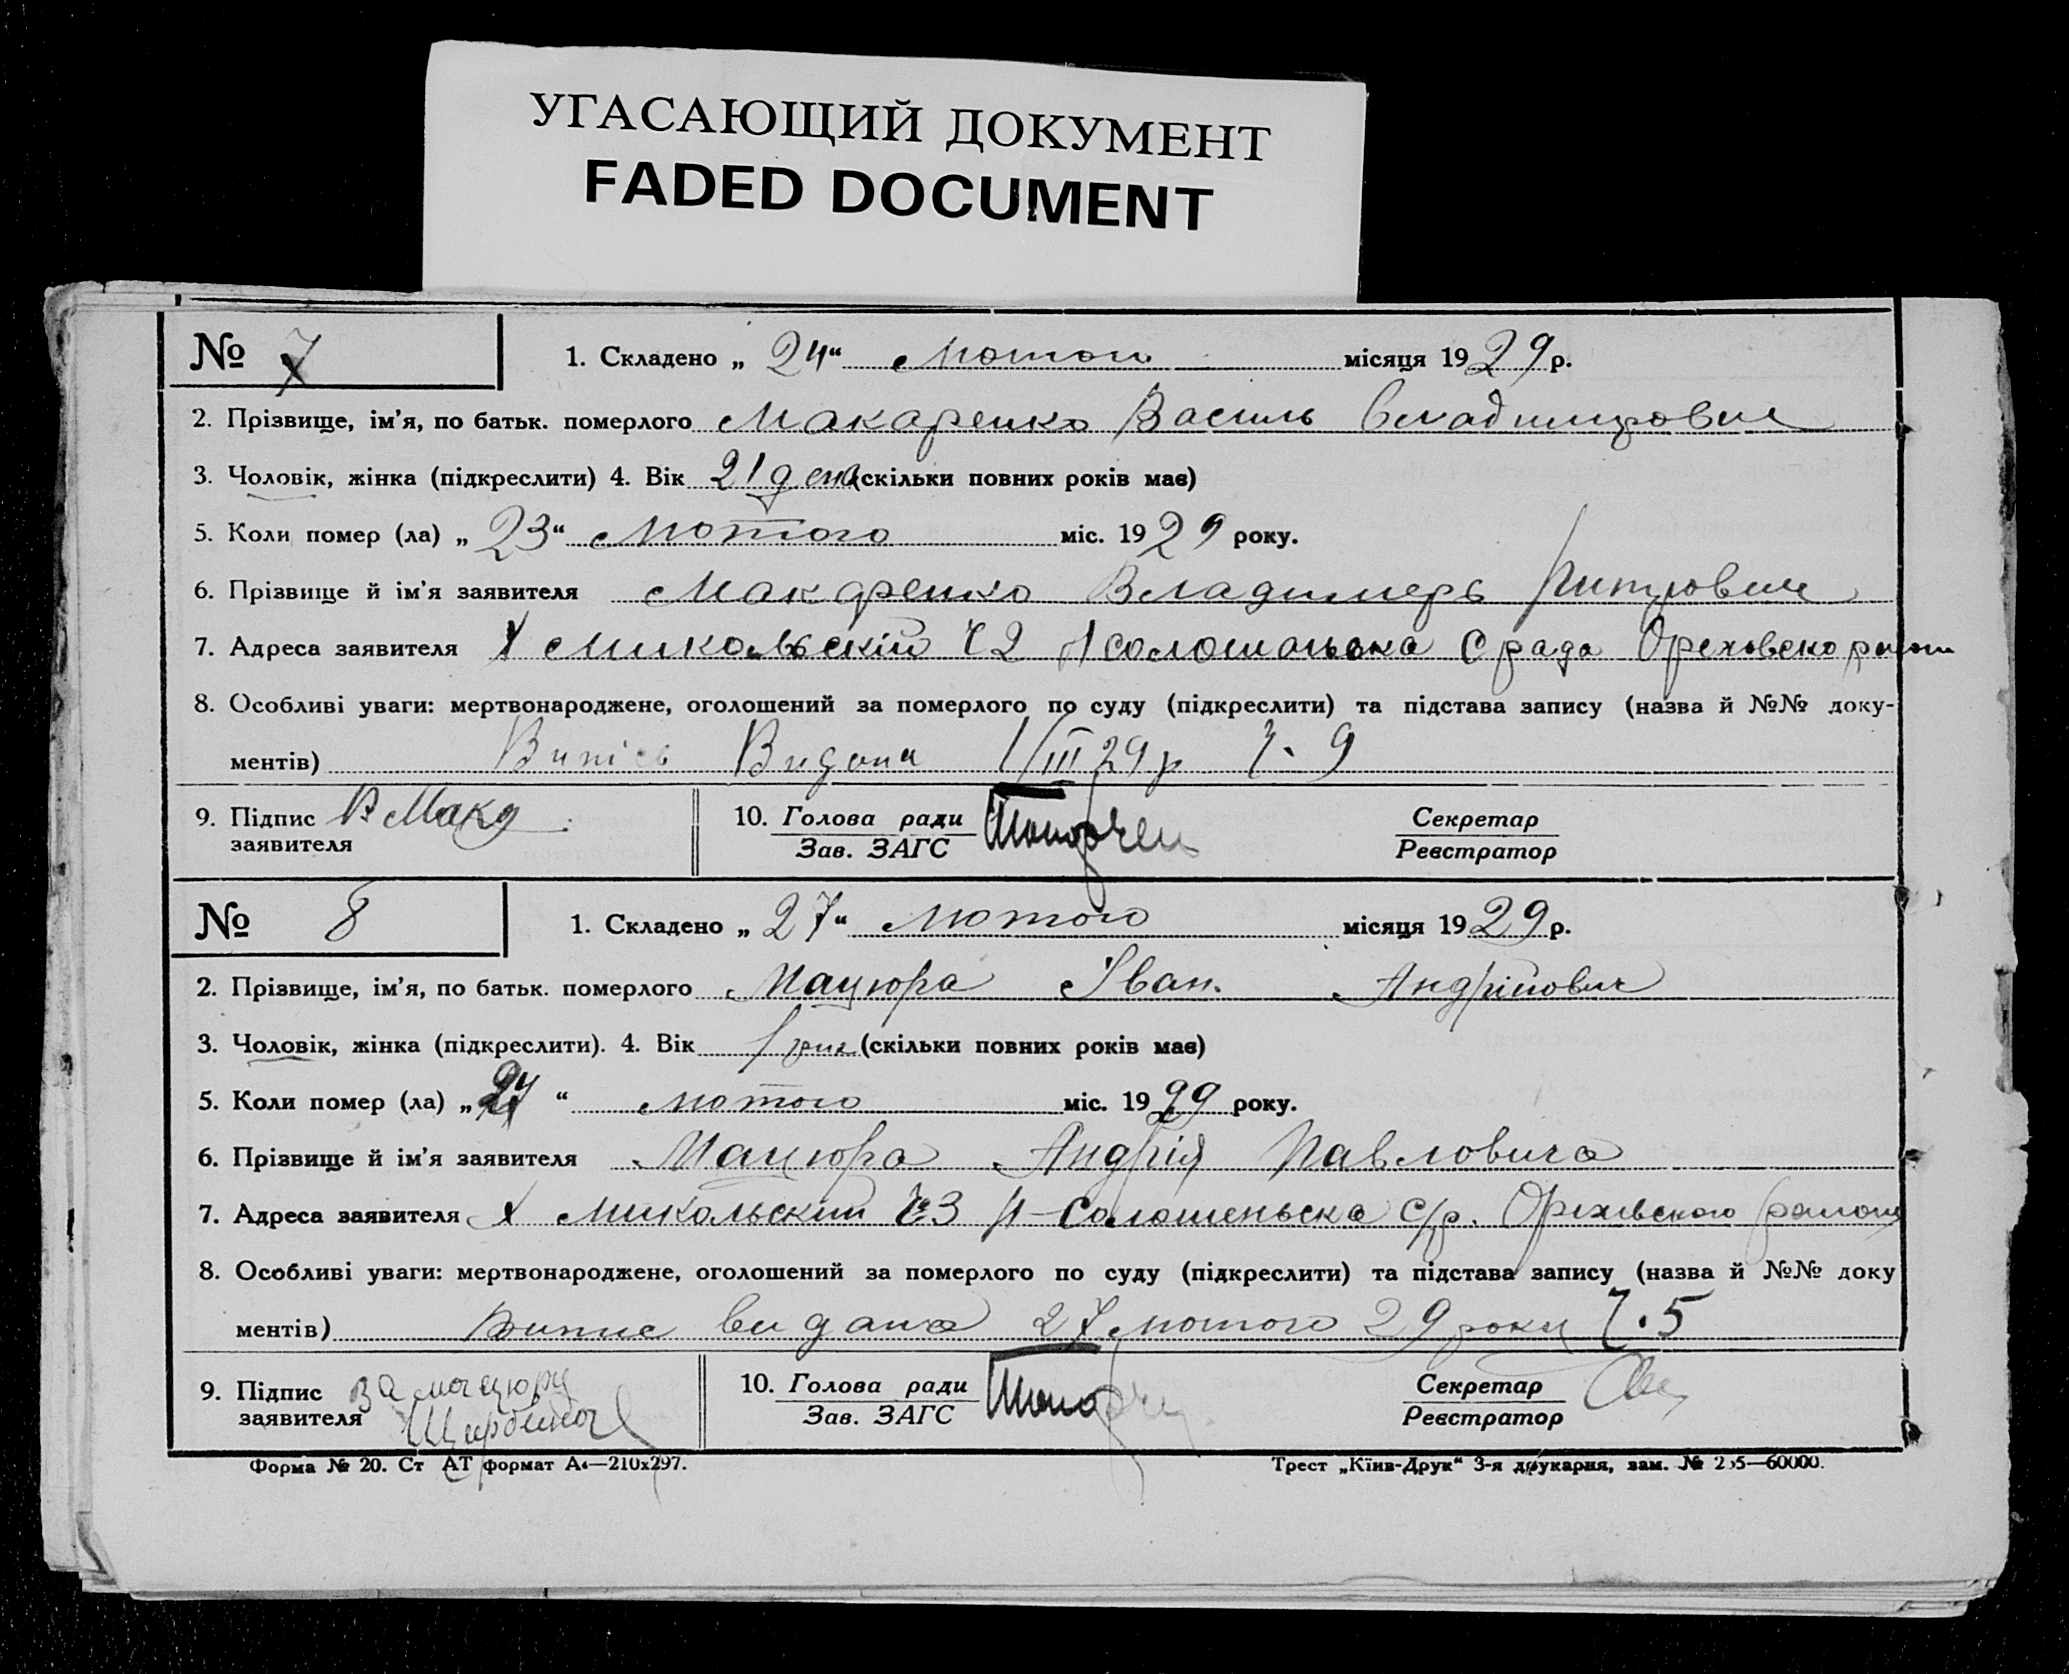 УГАСАЮЩИЙ ДОКУМЕНТ
FADED DOCUMENT
№ 7 1. Складено „ 24 “ Лютого місяця 1929 р.
2. Прізвище, ім'я, по батьк. померлого Макаренко Василь Владимирович
3. Чоловік, жінка (підкреслити) 4. Вік 21 день (скільки повних років має)
5. Коли помер (ла) „ 23 “ Лютого міс. 1929 року.
6. Прізвище й ім'я заявителя Макаренко Владимеръ
7. Адреса заявителя Х Микольскій Ч 2 Срада
8. Особливі уваги: мертвонароджене, оголошений за померлого по суду (підкреслити) та підстава запису (назва й №№ доку-
ментів) Випісь Видана 1/III 29 р Ч. 9
9. Підпис заявителя В Мака 10. Голова ради Зав. ЗАГС Секретар Реєстратор
№ 8 1. Складено „ 27 “ Лютого місяця 1929 р.
2. Прізвище, ім'я, по батьк. померлого Мацюра Іван. Андрійович
3. Чоловік, жінка (підкреслити). 4. Вік 1 рик (скільки повних років має)
5. Коли помер (ла) „ 27 “ Лютого міс. 1929 року.
6. Прізвище й ім'я заявителя Мацюра Андрія Павловича
7. Адреса заявителя Х Микольский Ч 3 Н-Солошеньска С/р. Оріхівского району
8. Особливі уваги: мертвонароджене, оголошений за померлого по суду (підкреслити) та підстава запису (назва й №№ доку
ментів) Випис видана 27 лютого 29 року Ч. 5
9. Підпис заявителя За мацюру 10. Голова ради Зав. ЗАГС Секретар Реєстратор
Форма № 20. Ст АТ формат А4—210х297. Трест „Київ-Друк“ 3-я друкарня, зам. № —60000.